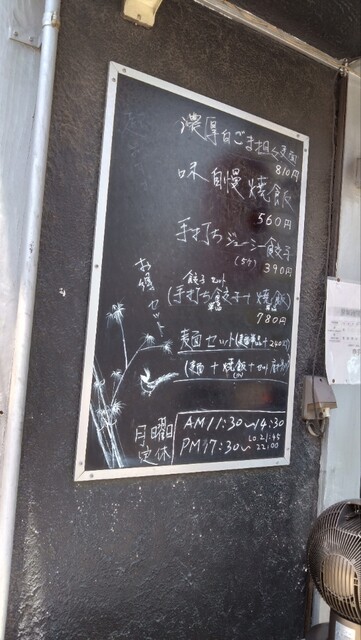 濃厚白ごま担々麺
810円
味自慢焼飯
560円
手打ちジューシー餃子
(5ケ) 390円
お得セット
餃子セット
(手打ち餃子+焼飯)
単品 単品
780円
麺セット(麺単品+240円)
(麺+焼飯+
月曜定休
AM11:30~14:30
LO.21:45
PM17:30~22:00